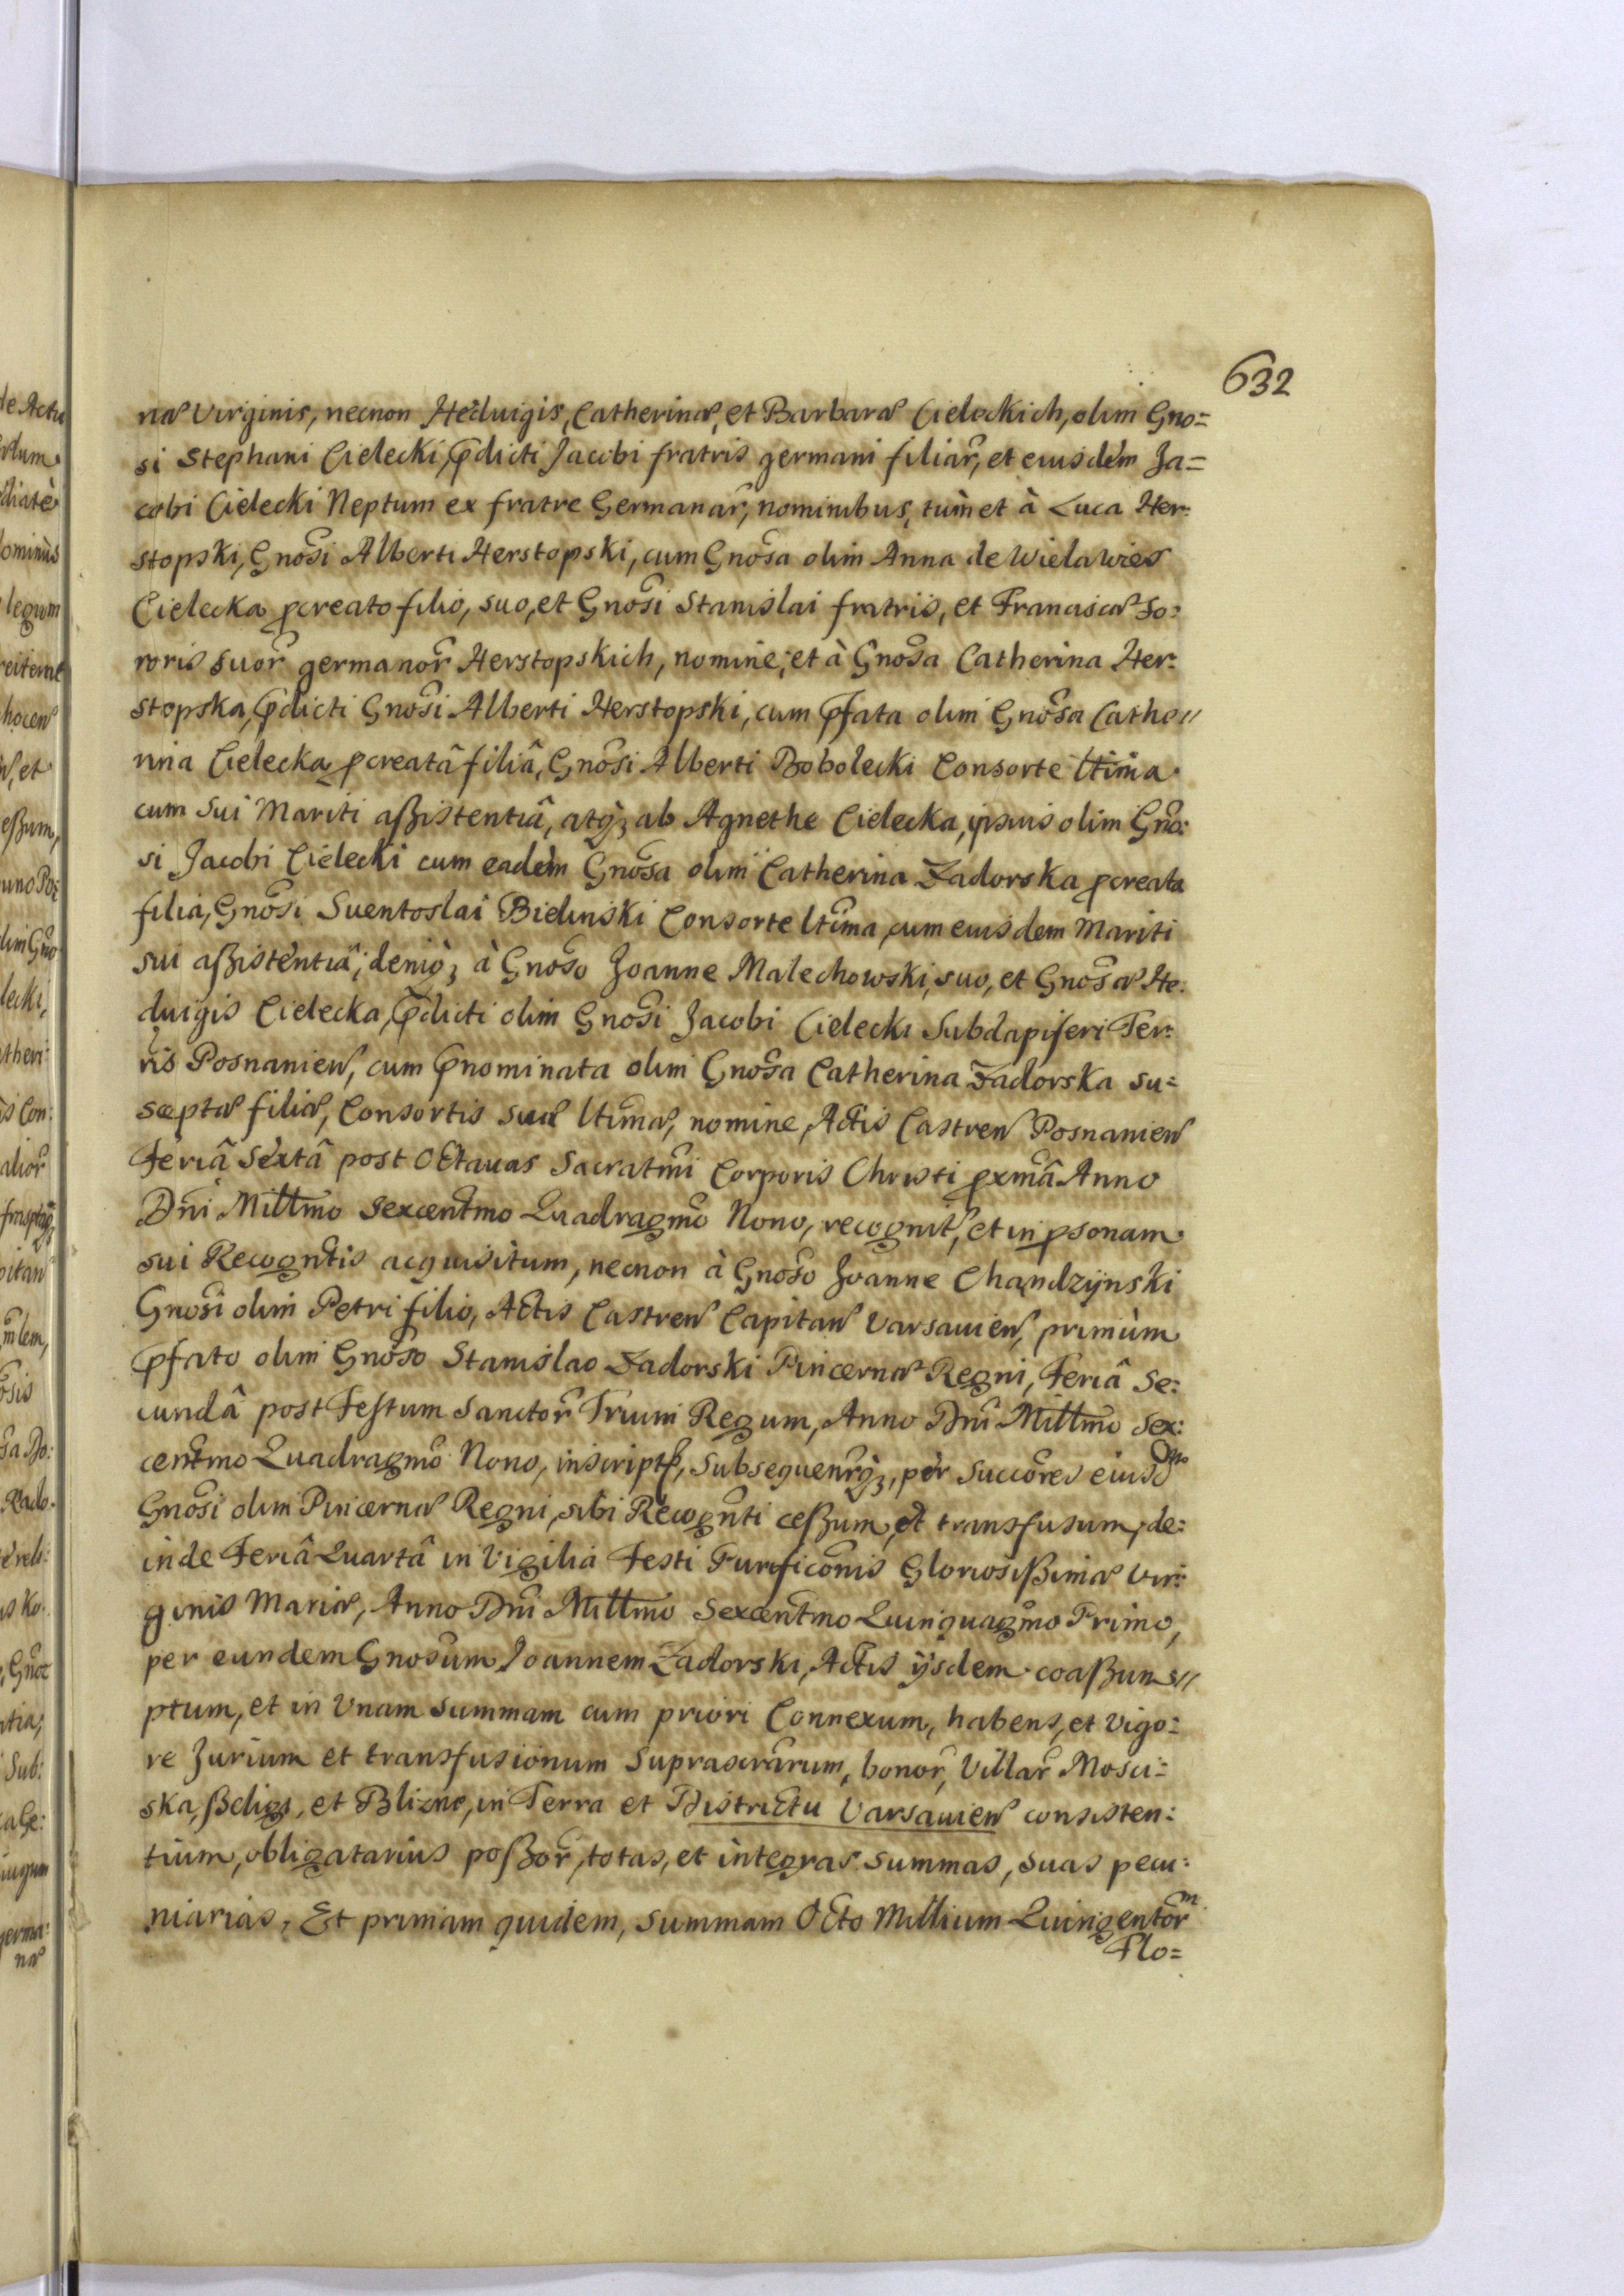 632
næ Virginis, necnon Heduigis, Catherinæ, et Barbaræ Cieleckich, olim Gno=
si Stephani Cielecki, p̃dicti Jacobi fratris germani filiar̃, et eiusdem Ja=
cobi Cielecki Neptum ex fratre Germanar̃, nominibus, tum et à Luca Her:
stopski, Gnõsi Alberti Herstopski, cum Gnõsa olim Anna de Wielawies
Cielecka pcreato filio, suo, et Gnõsi Stanislai fratris, et Franciscæ So:
roris suor̃ germanor̃ Herstopskich, nomine; et à Gnõsa Catherina Her:
stopska, p̃dicti Gnõsi Alberti Herstopski, cum p̃fata olim Gnõsa Cathe//
rina Cielecka pcreatâ filiâ, Gnõsi Alberti Bobolecki Consorte ltima
cum sui Mariti aßistentiâ, atq̀; ab Agnethe Cielecka, ipsius olim Gnõ:
si Jacobi Cielecki cum eadèm Gnõsa olim Catherina Zadorska pcreata
filia, Gnõsi Suentoslai Bielinski Consorte ltima, cum eiusdem Mariti
sui aßistentiâ; deniq̀; à Gnõso Joanne Malechowski, suo, et Gnõsæ He:
duigis Cielecka, p̃dicti olim Gnõsi Jacobi Cielecki Subdapiferi Ter:
ris Posnanien, cum p̃nominata olim Gnõsa Catherina Zadorska su=
sceptæ filiæ, Consortis suæ ltimæ, nomine, Actis Castren Posnanien
Feriâ Sextâ post Octauas Sacratmi Corporis Christi pxmâ Anno
Dni Millmo Sexcentmo Quadragmo Nono, recognit, et in psonam
sui Recogntis acquisitum, necnon à Gnõso Joanne Chądzijnski
Gnõsi olim Petri filio, Actis Castren Capitan Varsauien, primùm
p̃fato olim Gnõso Stanislao Zadorski Pincernæ Regni, Feriâ Se:
cundâ post Festum Sanctor̃ Trium Regum, Anno Dni Millmo Sex:
centmo Quadragmo Nono, inscript, Subsequenrq̀;, per Succores eiusdm
Gnõsi olim Pincernæ Regni, sibi Recognti ceßum, et transfusum, de:
inde Feriâ Quartâ in Vigilia Festi Purificõnis Gloriosißimæ Vir:
ginis Mariæ, Anno Dni Millmo Sexcentmo Quinquagmo Primo,
per eundem Gnosum Joannem Zadorski, Actis ijsdem coaßum//
ptum, et in Unam summam cum priori Connexum, habens, et vigo:
re Jurium et transfusionum suprascrarum, bonor̃, Villar̃ Mosci:
ska, et Blizne, in Terra et Districtu Varsauien consisten:
tium, obligatarius poßor, totas, et integras summas, suas pecu:
niarias, Et primam quidem, summam Octo Millium Quingentorm
Flo=